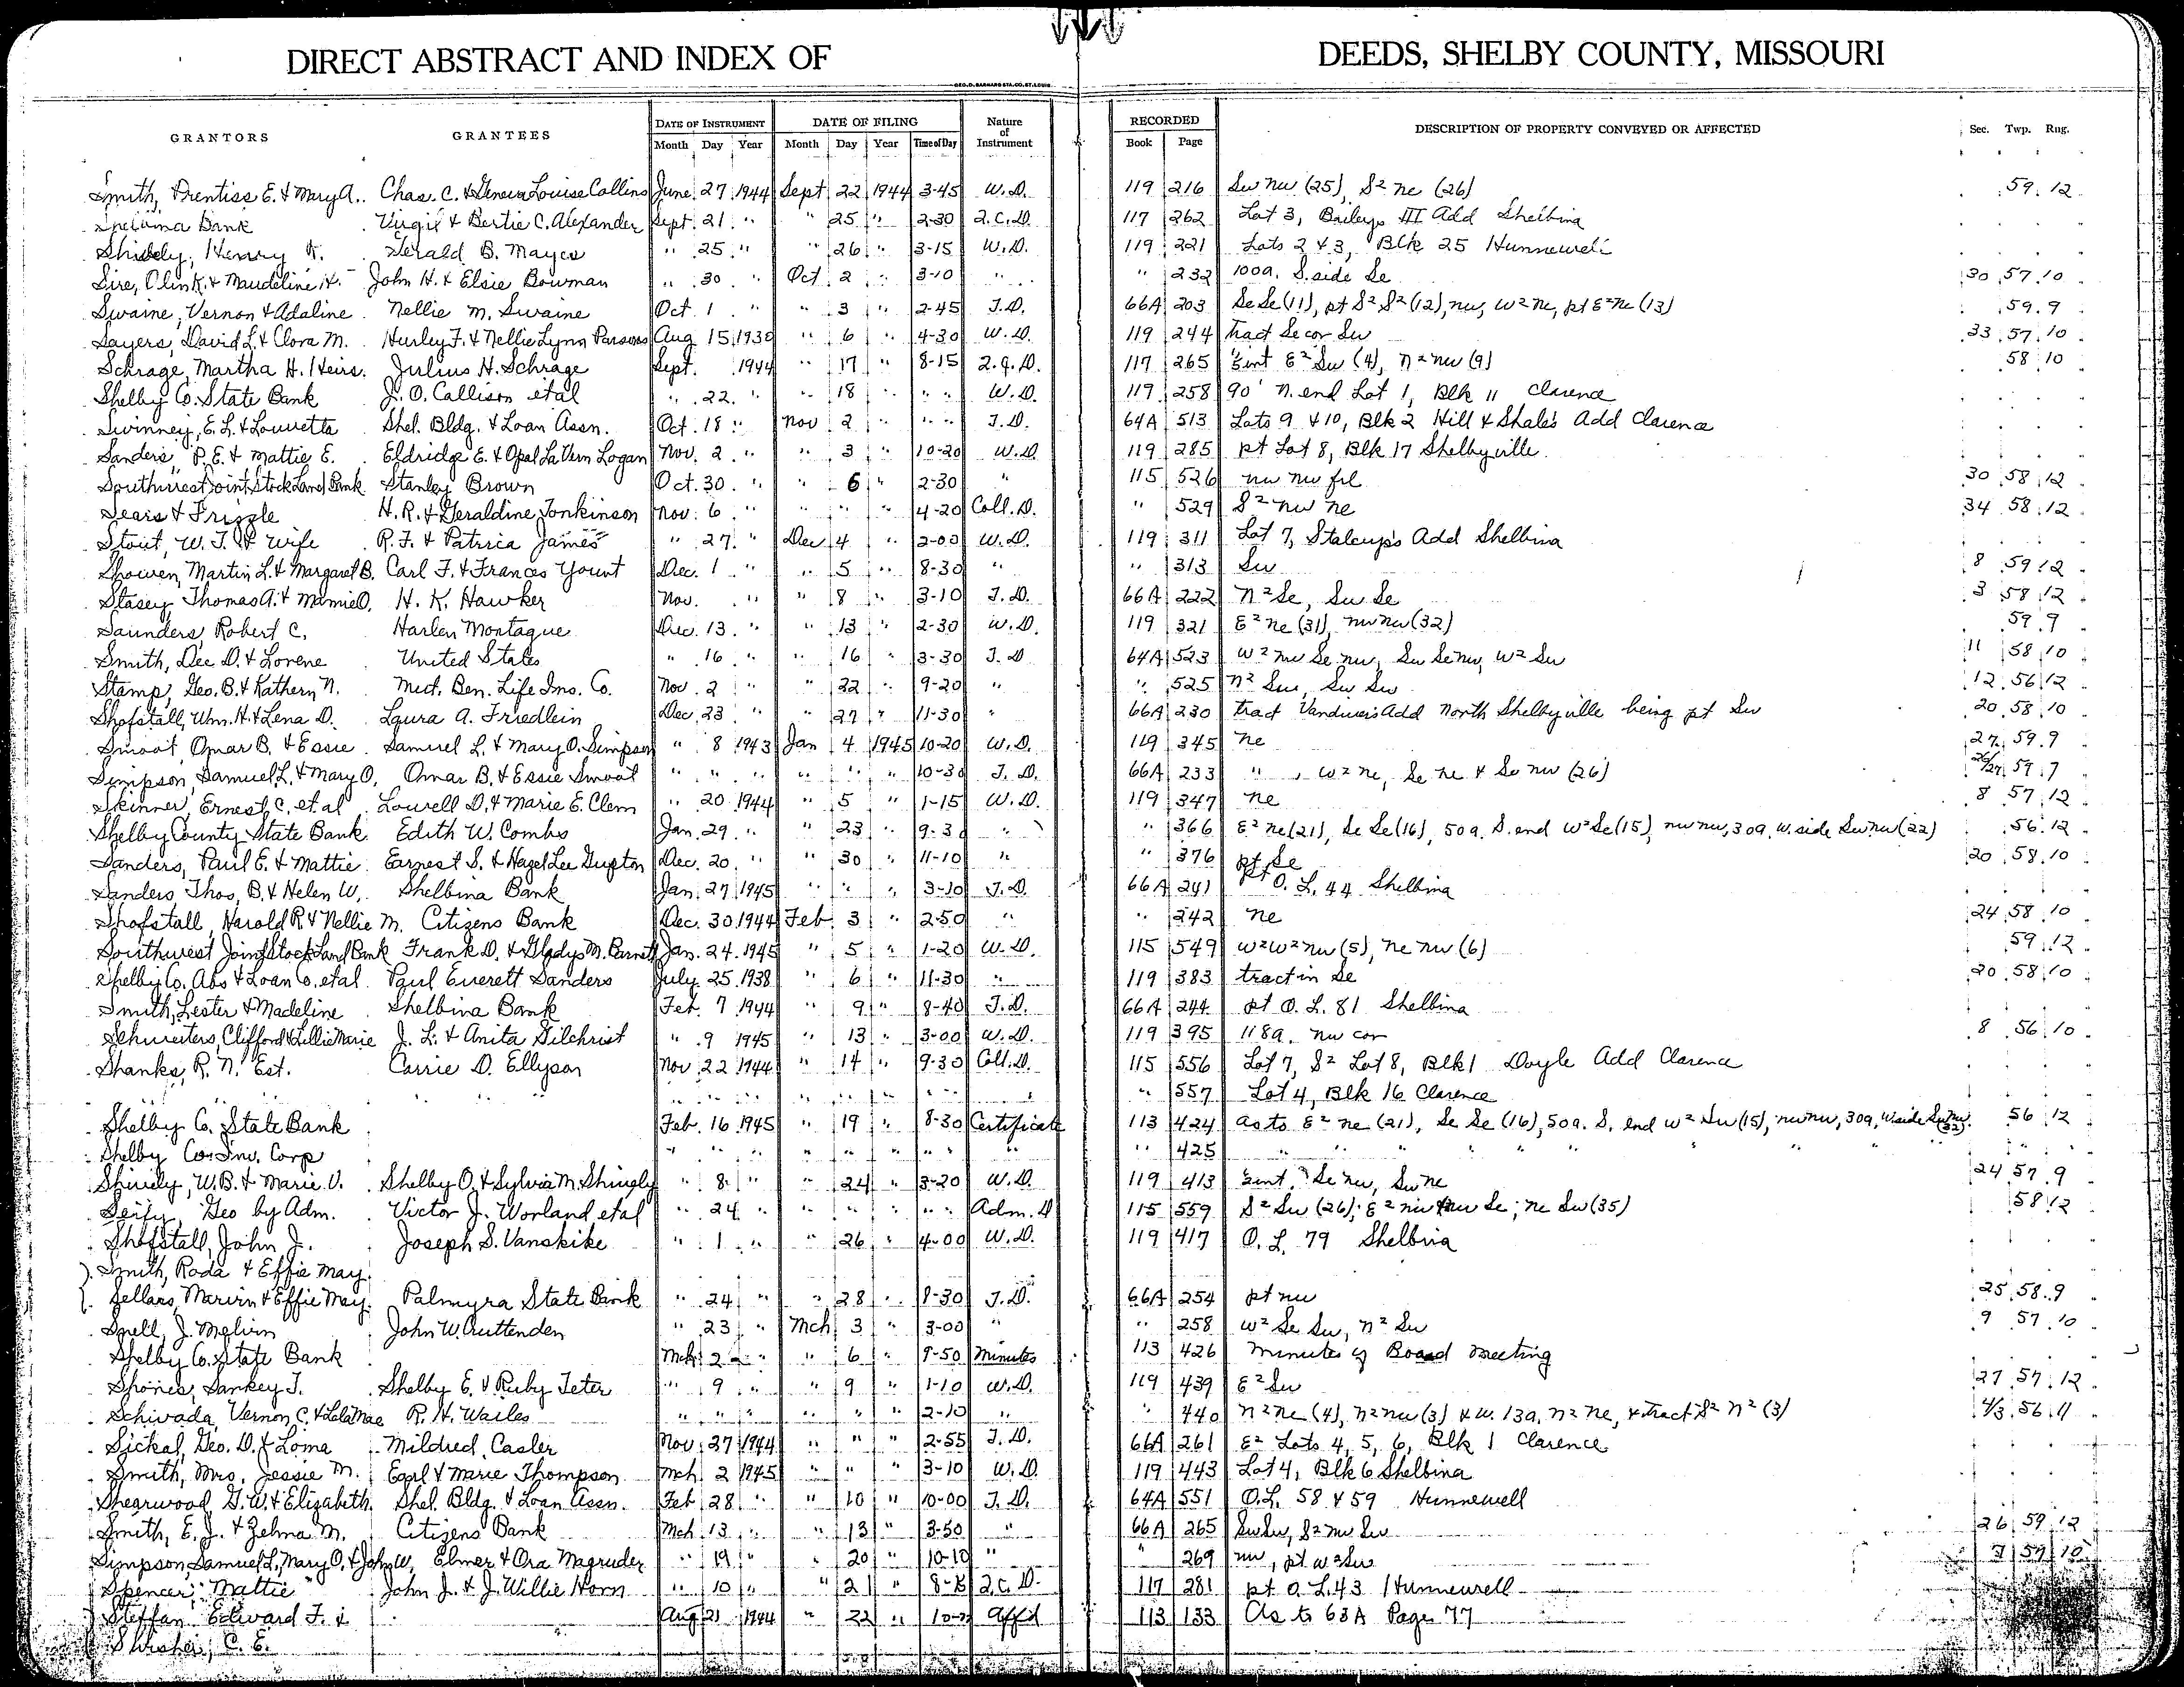 DIRECT ABSTRACT AND INDEX OF DEEDS, SHELBY COUNTY, MISSOURI
GEO. D. BARNARD STA. CO. ST. LOUIS
GRANTORS GRANTEES DATE OF INSTRUMENT DATE OF FILING Nature of Instrument RECORDED DESCRIPTION OF PROPERTY CONVEYED OR AFFECTED Sec. Twp. Rng.
Month Day Year Month Day Year Time of Day Book Page
Smith, Prentiss E. & Mary A. Chas. C. & Geneva Louise Collins June 27 1944 Sept 22 1944 3-45 W.D. 119 216 Sw nw (25), S² ne (26) 59 12
Bank Virgil & Bertie C. Alexander Sept. 21 " " 25 " 2-30 2.C.D. 117 262 Lot 3, Baileys III Add Shelbina
Shively, Henry R. Gerald B. Mayes " 25 " " 26 " 3-15 W.D. 119 221 Lots 2 & 3, Blk 25 Hunnewell
Sire, Olin K. & Maudeline H. John H. & Elsie Bowman " 30 " Oct 2 " 3-10 " " 232 100a. S. side Se 30 57 10
Swaine, Vernon & Adaline Nellie M. Swaine Oct 1 " " 3 " 2-45 T.D. 66A 203 Se Se (11), pt S² S² (12), nw, w² ne, pt E² ne (13) 59 9
Sayers, David L. & Clora M. Hurley F. & Nellie Lynn Parsons Aug 15 1939 " 6 " 4-30 W.D. 119 244 tract Se cor Sw 33 57 10
Schrage, Martha H. Heirs. Julius H. Schrage Sept. 1944 " 17 " 8-15 2.q.D. 117 265 int E² Sw (4), n² nw (9) 58 10
Shelby Co. State Bank J. O. Callison etal " 22 " " 18 " " " W.D. 119 258 90' n. end Lot 1, Blk 11 Clarence
Swinney, E. L. & Louvetta Shel. Bldg. & Loan Assn. Oct. 18 " Nov 2 " " " T.D. 64A 513 Lots 9 & 10, Blk 2 Hill & Shale's Add Clarence
Sanders, P. E. & Mattie E. Eldridge E. & Opal LaVern Logan Nov. 2 " " 3 " 10-20 W.D. 119 285 pt Lot 8, Blk 17 Shelbyville
Southwest Joint Stock Land Bank Stanley Brown Oct. 30 " " 6 " 2-30 " 115 526 nw nw frl 30 58 12
Sears & Frizzle H. R. & Geraldine Tonkinson Nov. 6 " " " " 4-20 Coll. D. " 529 S² nw ne 34 58 12
Stout, W. T. & Wife R. F. & Patricia James " 27 " Dec 4 " 2-00 W.D. 119 311 Lot 7, Stalcup's Add Shelbina
Showen, Martin L. & Margaret B. Carl F. & Frances Yount Dec. 1 " " 5 " 8-30 " " 313 Sw 8 59 12
Stasey, Thomas A. & Mamie O. H. K. Hawker Nov. " " 8 " 3-10 T.D. 66A 222 N² Se, Sw Se 3 58 12
Saunders, Robert C. Harlen Montague Dec. 13 " " 13 " 2-30 W.D. 119 321 E² ne (31), nw nw (32) 59 9
Smith, Dee D. & Lorene United States " 16 " " 16 " 3-30 T.D 64A 523 W² nw Se nw, Sw Se nw, W² Sw 11 58 10
Stamp, Geo. B. & Kathern N. Mut. Ben. Life Ins. Co. Nov. 2 " " 22 " 9-20 " " 525 N² Sw, Sw Sw 12 56 12
Shofstall, Wm. H. & Lena D. Laura A. Friedlein Dec. 23 " " 27 " 11-30 " 66A 230 tract Vandiver's Add North Shelbyville being pt Sw 20 58 10
Smoot, Omar B. & Essie Samuel L. & Mary O. Simpson " 8 1943 Jan 4 1945 10-20 W.D. 119 345 ne 27 59 9
Simpson, Samuel L. & Mary O. Omar B. & Essie Smoot " " " " " " 10-30 T.D. 66A 233 " , W² ne, Se ne & Se nw (26) 26/27 59 9
Skinner, Ernest C. et al Lowell D. & Marie E. Clem " 20 1944 " 5 " 1-15 W.D. 119 347 ne 8 57 12
Shelby County State Bank Edith W. Combs Jan. 29 " " 23 " 9-30 " " 366 E² ne (21), Se Se (16), 50a. S. end W² Se (15), nw nw, 30a. W. side Sw nw (22) 56 12
Sanders, Paul E. & Mattie Earnest S. & Hazel Lee Gupton Dec. 20 " " 30 " 11-10 " " 376 pt Se 20 58 10
Sanders, Thos. B. & Helen W. Shelbina Bank Jan. 27 1945 " " " 3-10 T.D. 66A 241 pt O. L. 44 Shelbina
Shofstall, Harold R. & Nellie M. Citizens Bank Dec. 30 1944 Feb. 3 " 2-50 " " 242 ne 24 58 10
Southwest Joint Stock Land Bank Frank D. & Gladys M. Barnett Jan. 24 1945 " 5 " 1-20 W.D. 115 549 W² W² nw (5), ne nw (6) 59 12
Shelby Co. Abs & Loan Co. etal Paul Everett Sanders July 25 1938 " 6 " 11-30 " 119 383 tract in Se 20 58 10
Smith, Lester & Madeline Shelbina Bank Feb. 7 1944 " 9 " 8-40 T.D. 66A 244 pt O. L. 81 Shelbina
Schwieters, Clifford & Lillie Marie J. L. & Anita Gilchrist " 9 1945 " 13 " 3-00 W.D. 119 395 118a. nw cor 8 56 10
Shanks, R. N. Est. Carrie D. Ellyson Nov 22 1944 " 14 " 9-30 Coll. D. 115 556 Lot 7, S² Lot 8, Blk 1 Doyle Add Clarence
" " " " " " " " " " " " " " 557 Lot 4, Blk 16 Clarence
Shelby Co. State Bank Feb. 16 1945 " 19 " 8-30 Certificate 113 424 as to E² ne (21), Se Se (16), 50a. S. end W² Sw (15), nw nw, 30a, W. side Sw nw (22). 56 12
Shelby Co. Inv. Corp " " " " " " " " " 425 " " " " " " " "
Shively, W. B. & Marie V. Shelby O. & Sylvia M. Shively " 8 " " 24 " 3-20 W.D. 119 413 int. Se nw, Sw ne 24 57 9
Geo by Adm. Victor J. Worland etal " 24 " " " " " " Adm. D 115 559 S² Sw (26); E² nw Se; ne Sw (35) 58 12
Shofstall, John J. Joseph S. Vanskike " 1 " " 26 " 4-00 W.D. 119 417 O. L. 79 Shelbina
Smith, Roda & Effie May
Sellars, Marvin & Effie May Palmyra State Bank " 24 " " 28 " 8-30 T.D. 66A 254 pt nw 25 58 9
Snell, J. Melvin John W. Cruttenden " 23 " Mch 3 " 3-00 " " 258 W² Se Sw, n² Sw 9 57 10
Shelby Co. State Bank Mch 2 " " 6 " 9-50 Minutes 113 426 Minutes of Board meeting
Shores, Sankey T. Shelby E. & Ruby Teter " 9 " " 9 " 1-10 W.D. 119 439 E² Sw 27 57 12
Schwada, Vernon C. & Lela Mae R. H. Wailes " " " " " " 2-10 " " 440 n² ne (4), n² nw (3) & W. 13a. n² ne, & tract S² n² (3) 4/3 56 11
Sickal, Geo. D. & Loma Mildred Casler Nov. 27 1944 " " " 2-55 T.D. 66A 261 E² Lots 4, 5, 6, Blk 1 Clarence
Smith, Mrs. Jessie M. Earl & Marie Thompson Mch. 2 1945 " " " 3-10 W.D. 119 443 Lot 4, Blk 6 Shelbina
Shearwood, G. W. & Elizabeth Shel. Bldg. & Loan Assn. Feb 28 " " 10 " 10-00 T.D. 64A 551 O.L. 58 & 59 Hunnewell
Smith, E. J. & Zelma M. Citizens Bank Mch. 13 " " 13 " 3-50 " 66A 265 Sw Sw, S² nw Sw 26 59 12
Simpson, Samuel L., Mary O. & John W. Elmer & Ora Magruder " 19 " " 20 " 10-10 " " 269 nw, pt W² Sw 59 10
Spencer, Mattie John J. & J. Willie Horn " 10 " " 21 " 2.C.D. 117 281 pt O. L. 43 Hunnewell
Steffan Edward F. & Aug 21 1944 " 22 " Affd 113 133 As to 63A Page 77
Swisher, C. E.